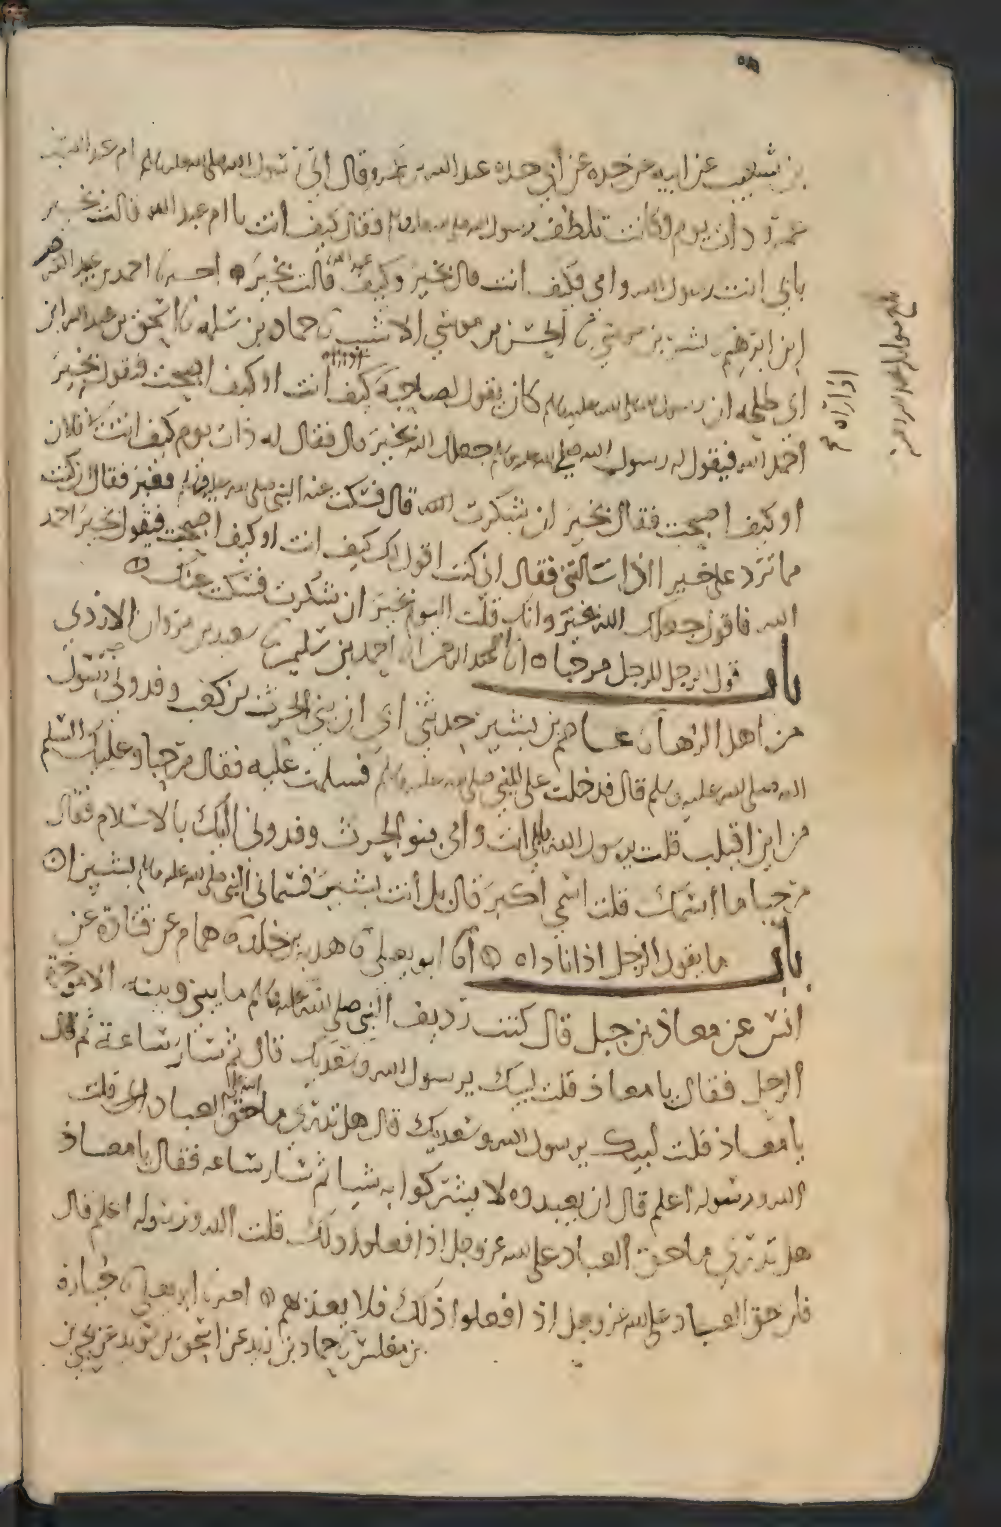 بن شعيب عن ابيه عن جده عن ابي جده عبد الله بن عمرو قال اتى رسول الله صلى الله عليه وسلم ام عبد الله
عمرو ذات يوم وكانت تلطف رسول الله صلى الله عليه وسلم فقال كيف انت يا ام عبد الله قالت بخير
بابي انت رسول الله وامي فكيف انت قال بخير وكيف عبد الله قالت بخير احمد بن عبد الله
ابن ابراهيم بشر بن موسى الحسن بن موسى الاشيب حماد بن سلمة اسحق بن عبد الله ابن
ابي طلحه ان رسول الله صلى الله عليه وسلم كان يقول لصاحبه كيف انت او كيف اصبحت فيقول بخير
احمد الله فيقول له رسول الله صلى الله عليه وسلم جعلك الله بخير قال فقال له ذات يوم كيف انت يا فلان
او كيف اصبحت فقال بخير ان شكرت الله قال فسكت عنه النبي صلى الله عليه وسلم فقال كنت
مما ترد علي خيرا اذا سالتني فقال اني كنت اقول لك كيف انت او كيف اصبحت فيقول بخير احمد
الله فاقول جعلك الله بخير وانك قلت اليوم بخير ان شكرت فسكت عنك
باب قول الرجل للرجل مرحبا احمد بن سليمن سعيد بن مروان الازدي
من اهل الرها عصام بن بشير حدثني ابي ان بني الحرث بن كعب وفدوني الى رسول
الله صلى الله عليه وسلم قال فدخلت على النبي صلى الله عليه وسلم فسلمت عليه فقال مرحبا وعليك السلم
من اين اقبلت قلت يرسول الله بابي انت وامي بنو الحرث وفدوني اليك بالاسلام فقال
مرحبا ما اسمك قلت اسمي اكبر قال بل انت بشير فسماني النبي صلى الله عليه وسلم بشيرا
باب ما يقول الرجل اذا ناداه ابو يعلى هدبه بن خالد همام عن قتادة عن
انس عن معاذ بن جبل قال كنت رديف النبي صلى الله عليه وسلم ما بيني وبينه الا موخرة
الرحل فقال يا معاذ قلت لبيك يرسول الله وسعديك قال ثم سار ساعة ثم قال
يا معاذ قلت لبيك يرسول الله وسعديك قال هل تدري ما حق الله على العباد قلت
الله ورسوله اعلم قال ان يعبدوه لا يشركوا به شيا ثم سار ساعه فقال يا معاذ
هل تدري ما حق العباد على الله عز وجل اذا فعلوا ذلك قلت الله ورسوله اعلم قال
فان حق العباد على الله عز وجل اذ افعلوا ذلك فلا يعذبهم ابو يعلى جبارة
بن مغلس حماد بن زيد عن اسحق بن سويد عن يحيى بن